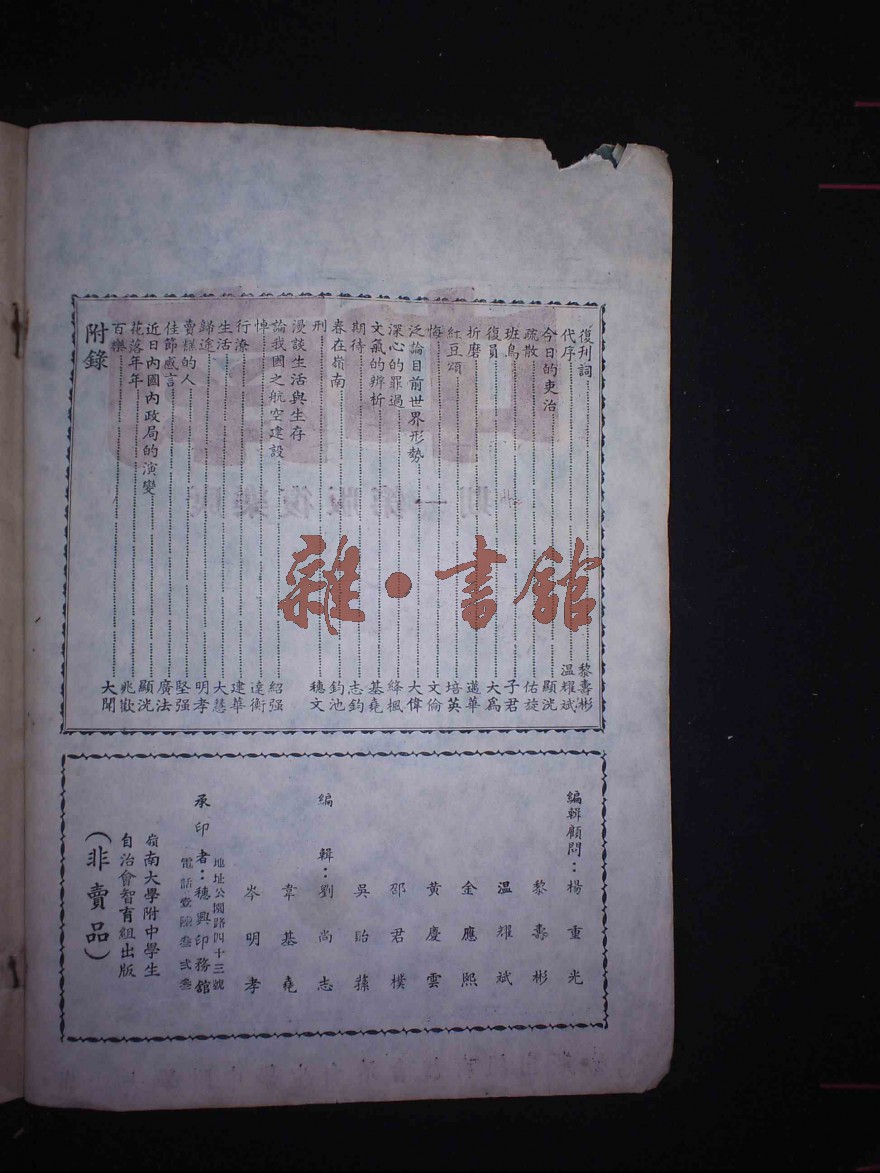 復刊詞……黎壽彬
代序……溫耀斌
今日的吏治……顯洸
疏散……佑旋
班鳥……子君
復員……大爲
折磨……邁華
紅豆頌……培英
悔……文倫
泛論目前世界形勢……大偉
深心的罪過……絳楓
文氣的辨析……基堯
期待……志鈞
春在嶺南……鈞池
刑……穗文
漫談生活與生存
論我國之航空建設……紹强
悼……達衡
行潦……建華
生活……大慧
歸途……明孝
賣餻的人……堅强
佳節感言……廣法
近日內國內政局的演變……顯洸
花落年年……兆歡
百樂……大聞
附錄
雜·書館
編輯顧問：楊重光
黎壽彬
溫耀斌
金應熙
黃慶雲
邵君樸
吳貽蓀
編輯：劉尚志
韋基堯
岑明孝
承印者：穗興印務舘
地址公園路四十三號
電話壹陸叁弍叁
嶺南大學附中學生
自治會智育組出版
（非賣品）